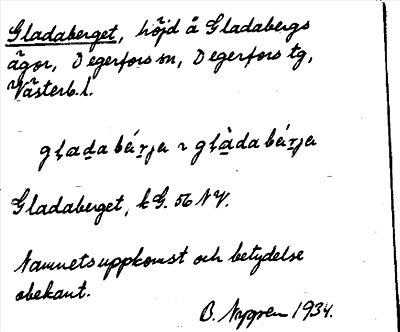 Gladaberget, höjd å Gladabergs
ägor, Degerfors sn, Degerfors tg,
Västerb.l.
gḷada bérja ~ gḷàda bérja
Gladaberget, kG. 56 NV.
Namnets uppkomst och betydelse
obekant.
B. Nygren 1934.